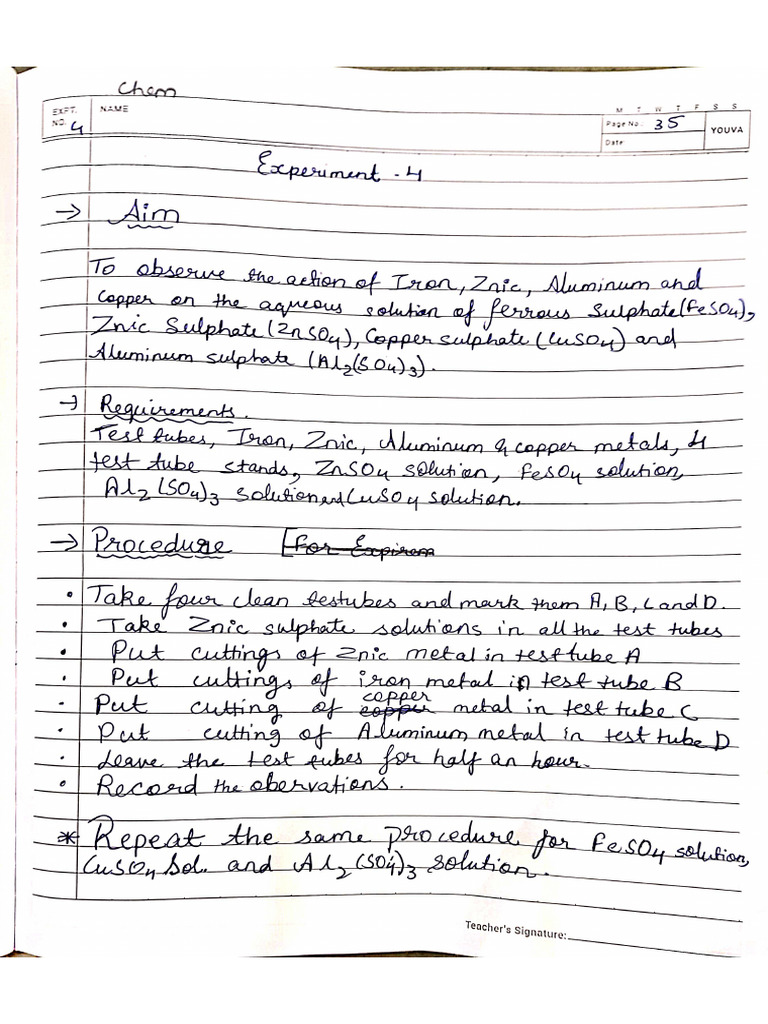 Chem
EXPT. NO. 4 NAME M T W T F S S
Page No.: 35 YOUVA
Date:
Experiment - 4
→ Aim
To observe the action of Iron, Znic, Aluminum and
copper on the aqueous solution of ferrous Sulphate (FeSO4),
Znic Sulphate (ZnSO4), Copper sulphate (CuSO4) and
Aluminum sulphate (Al2(SO4)3).
→ Requirements.
Test tubes, Iron, Znic, Aluminum & copper metals, 4
test tube stands, ZnSO4 solution, FeSO4 solution,
Al2(SO4)3 solution and CuSO4 solution.
→ Procedure [For Expirem
• Take four clean testubes and mark them A, B, C and D.
• Take Znic sulphate solutions in all the test tubes
• Put cuttings of Znic metal in test tube A
• Put cuttings of iron metal in test tube B
• Put cutting of copper metal in test tube C
• Put cutting of Aluminum metal in test tube D
• Leave the test tubes for half an hour.
• Record the obervations.
* Repeat the same procedure for FeSO4 solution,
CuSO4 Sol. and Al2(SO4)3 solution.
Teacher's Signature: